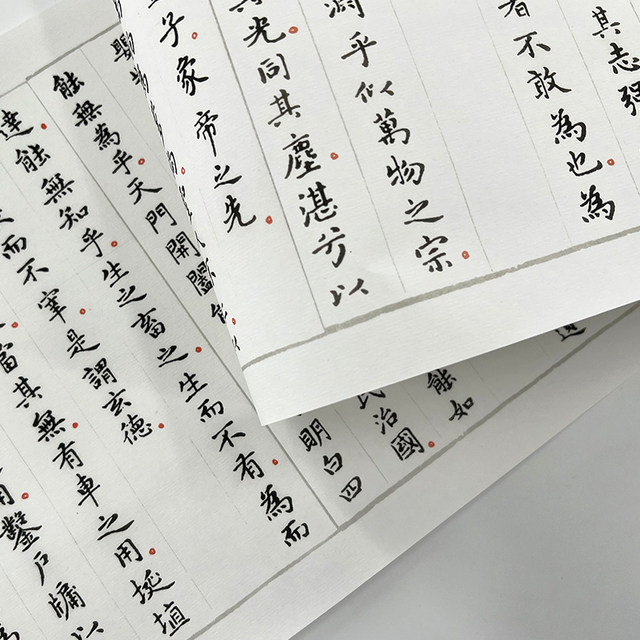 其志强
者不敢為也為
渊乎似萬物之宗
光同其塵湛兮似
子象帝之先
能如
民治國
明白四
能無為乎天門開闔能
達能無知乎生之畜之生而不有為而
而不宰是謂玄德
當其無有車之用埏埴
用鑿戶牖以